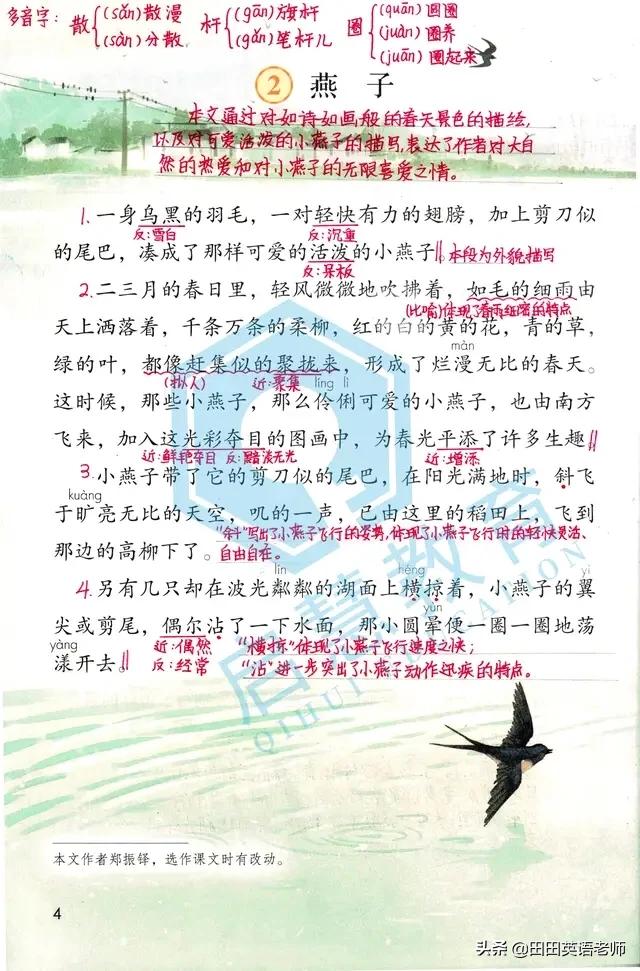 多音字：散 (sǎn)散漫 (sàn)分散 杆 (gān)旗杆 (gǎn)笔杆儿 圈 (quān)圆圈 (juàn)圈养 (juān)圈起来
2 燕子
本文通过对如诗如画般的春天景色的描绘，
以及对可爱活泼的小燕子的描写，表达了作者对大自
然的热爱和对小燕子的无限喜爱之情。
1.一身乌黑的羽毛，一对轻快有力的翅膀，加上剪刀似
反：雪白 反：沉重
的尾巴，凑成了那样可爱的活泼的小燕子。本段为外貌描写
反：呆板
2.二三月的春日里，轻风微微地吹拂着，如毛的细雨由
(比喻)体现了春雨细密的特点
天上洒落着，千条万条的柔柳，红的白的黄的花，青的草，
màn
绿的叶，都像赶集似的聚拢来，形成了烂漫无比的春天。
(拟人) 近：聚集 líng lì
这时候，那些小燕子，那么伶俐可爱的小燕子，也由南方
飞来，加入这光彩夺目的图画中，为春光平添了许多生趣
近：鲜艳夺目 反：黯淡无光 近：增添
3.小燕子带了它的剪刀似的尾巴，在阳光满地时，斜飞
kuàng
于旷亮无比的天空，叽的一声，已由这里的稻田上，飞到
"斜"写出了小燕子飞行的姿势，体现了小燕子飞行时的轻快灵活、
那边的高柳下了。 自由自在。
lín héng yì
4.另有几只却在波光粼粼的湖面上横掠着，小燕子的翼
yùn
尖或剪尾，偶尔沾了一下水面，那小圆晕便一圈一圈地荡
yàng 近：偶然 "横掠"体现了小燕子飞行速度之快；
漾开去。 反：经常 "沾"进一步突出了小燕子动作迅疾的特点。
启慧教育
QIHUI EDUCATION
本文作者郑振铎，选作课文时有改动。
4
头条 @田田英语老师